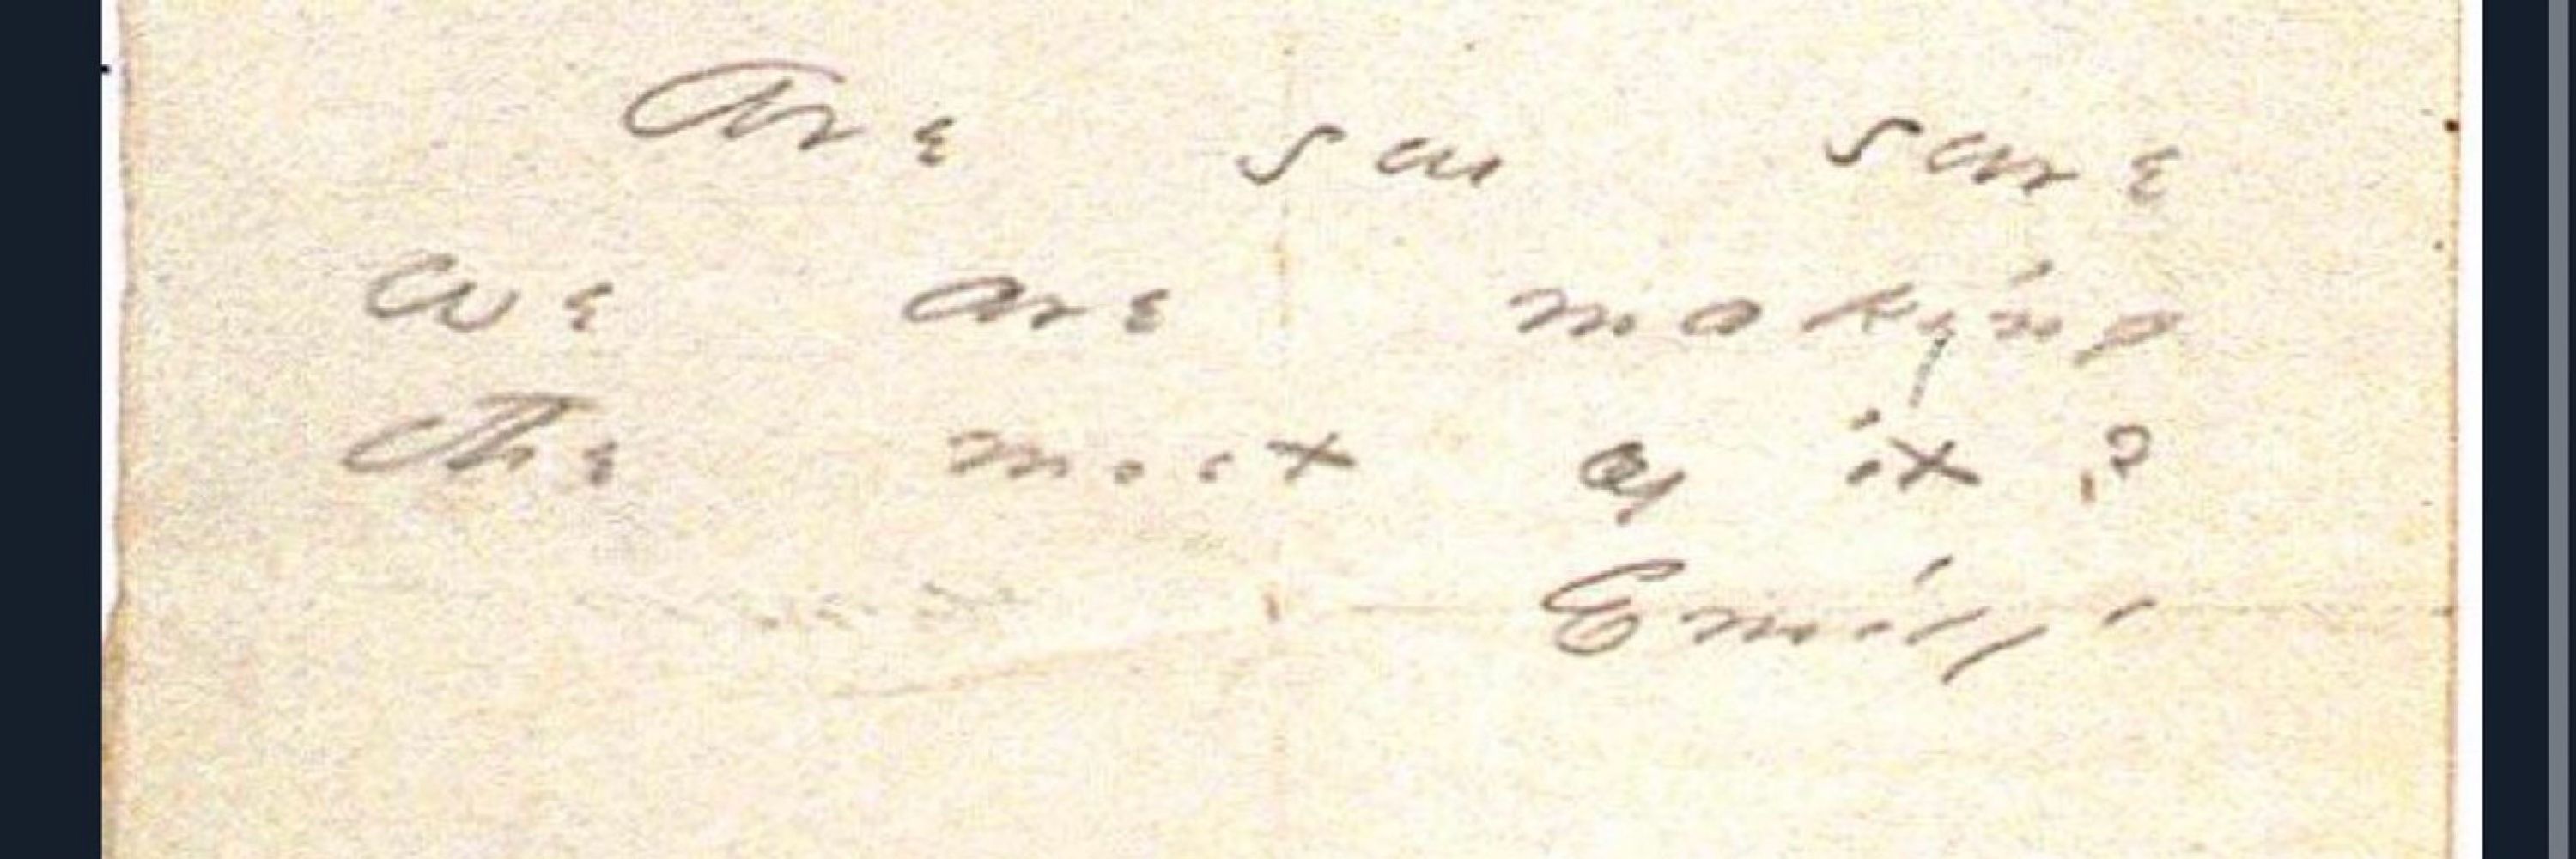 Are you sure
we are making
the most of it?
Emily -